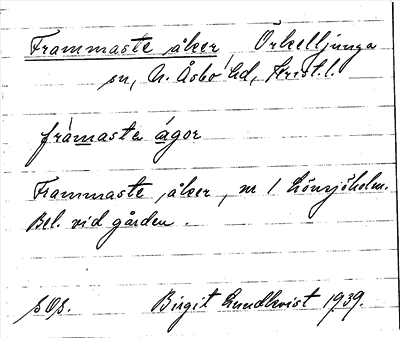 Frammaste åker, Örkelljunga
sn, N. Åsbo hd, Krist.l.
frámaste ágor
Frammaste åker, nr 1 Lönsjöholm.
Bel. vid gården.
sOs. Birgit Lundkvist 1939.